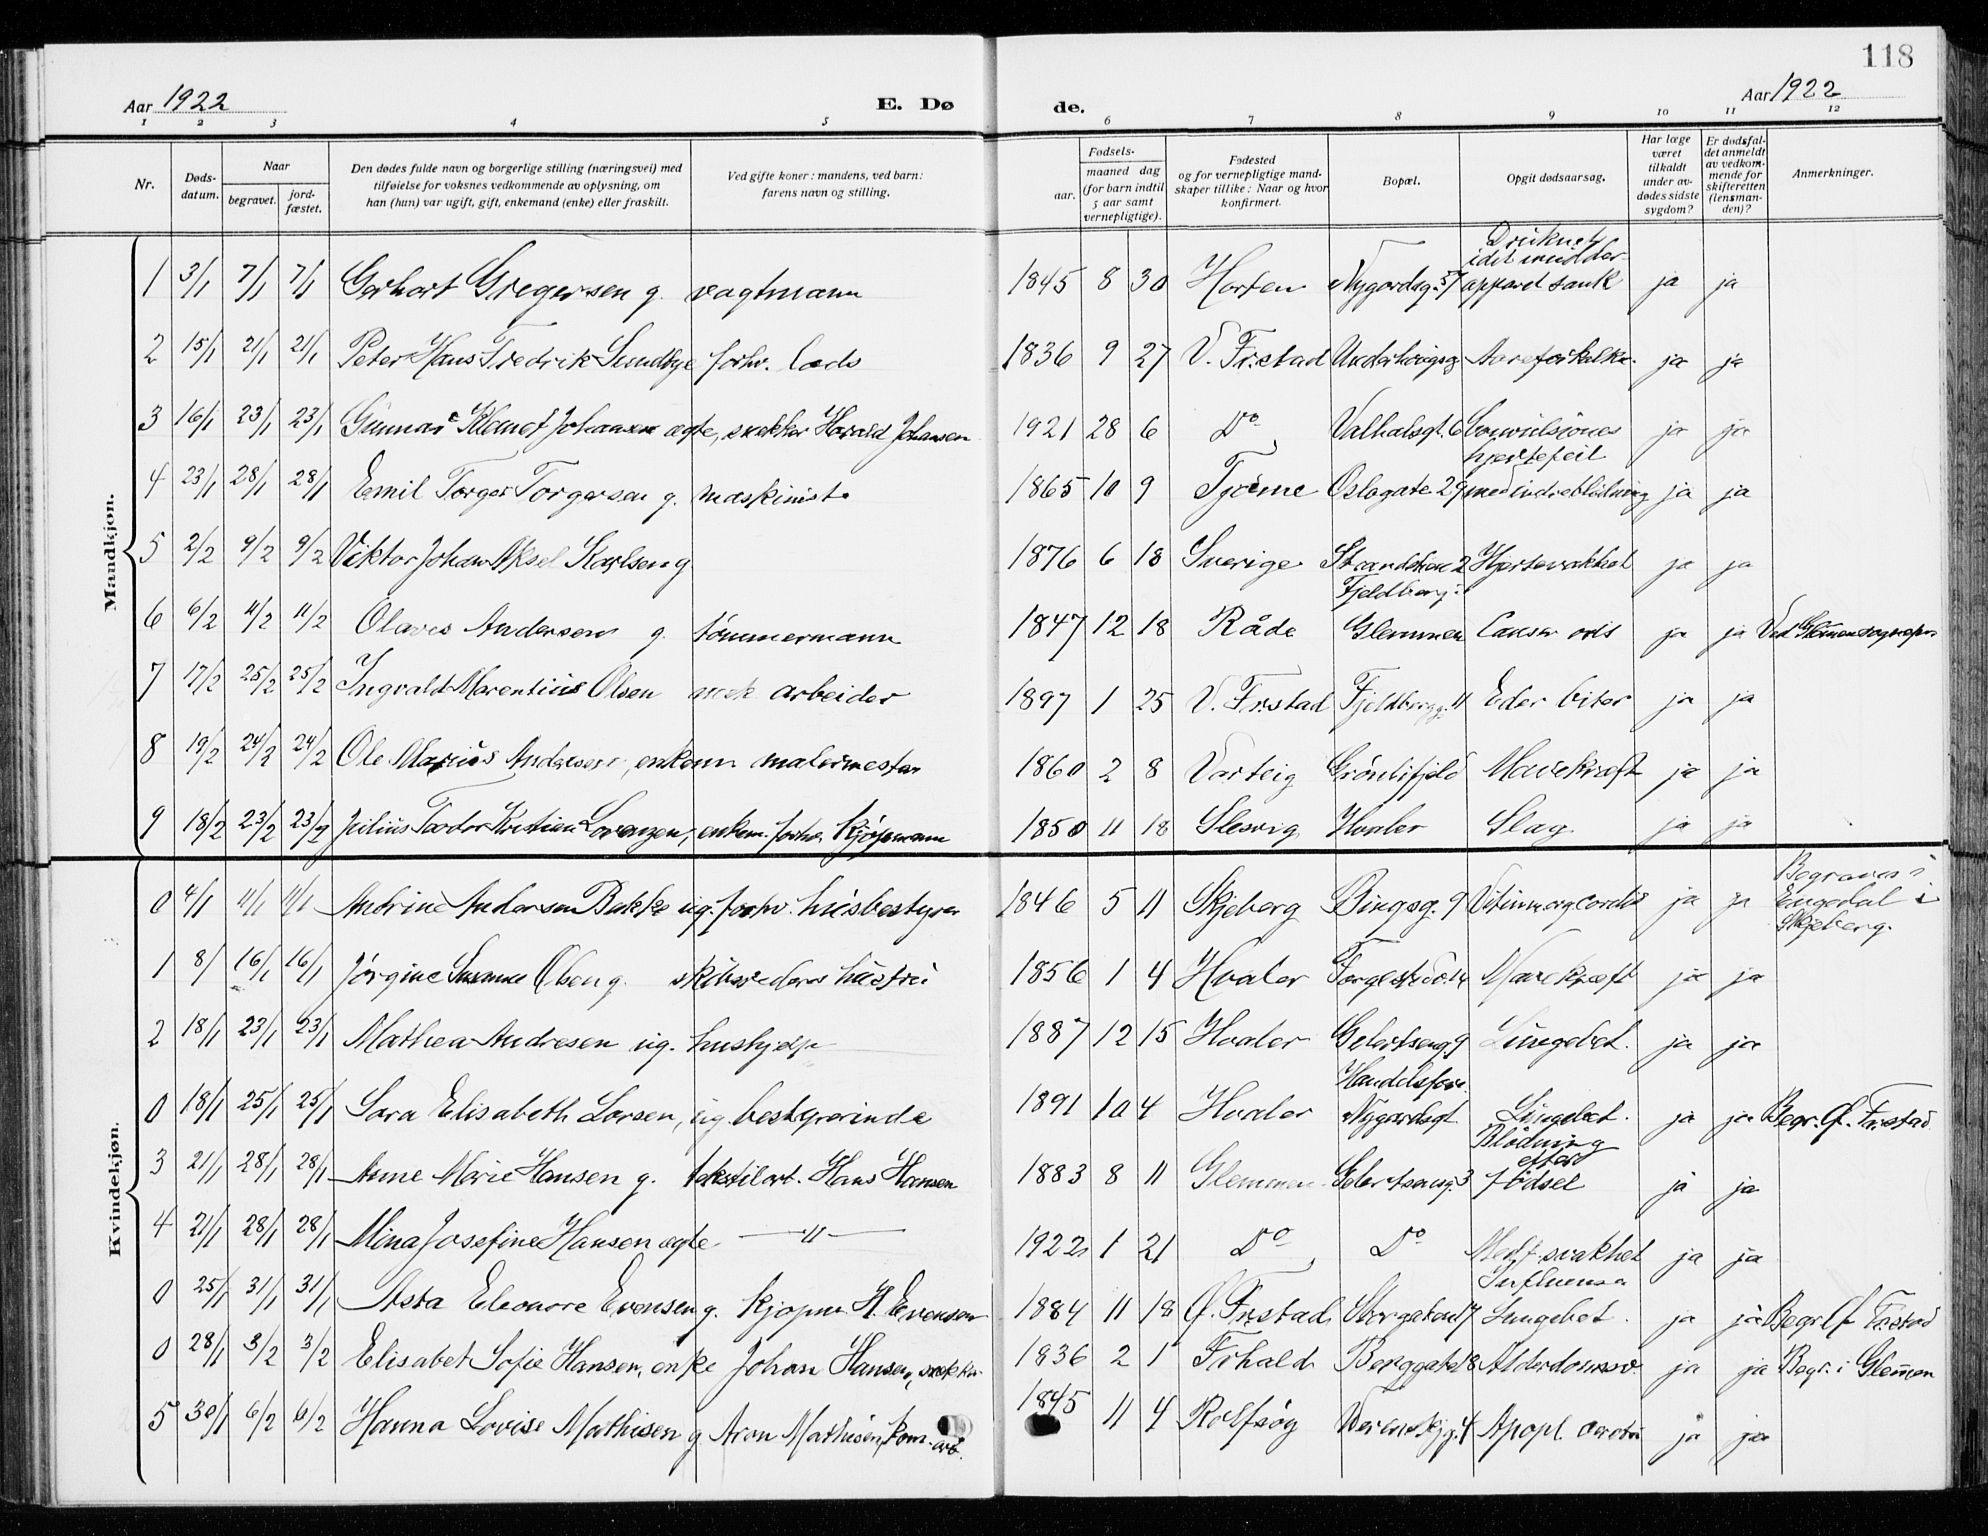 118
Aar 1922
E. Dø
de.
Aar 1922
1 2 3 4 5 6 7 8 9 10 11 12
Nr.
Døds-
datum.
Naar
begravet.
jord-
fæstet.
Den dødes fulde navn og borgerlige stilling (næringsvei) med
tilføielse for voksnes vedkommende av oplysning, om
han (hun) var ugift, gift, enkemand (enke) eller fraskilt.
Ved gifte koner: mandens, ved barn:
farens navn og stilling.
Fødsels-
aar.
maaned dag
(for barn indtil
5 aar samt
vernepligtige).
Fødested
og for vernepligtige mand-
skaper tillike: Naar og hvor
konfirmert.
Bopæl.
Opgit dødsaarsag.
Har læge
været
tilkaldt
under av-
dødes sidste
sygdom?
Er dødsfal-
det anmeldt
av vedkom-
mende for
skifteretten
(lensman-
den)?
Anmerkninger.
Mandkjøn.
1 3/1 7/1 7/1 Gerhart Gregersen g. vagtmann 1845 8 30 Horten Nygardsg. 57 Druknet idet mudder apparet sank ja ja
2 15/1 21/1 21/1 Peter Hans Fredrik Sundbye forhv. lods 1836 9 27 V. Fr.stad Aareforkalkn. ja ja
3 16/1 23/1 23/1 Gunnar Johansen ægte, snekker Harald Johansen 1921 28 6 Do Valhalsgt. 6 Convulsiones ja ja
4 23/1 28/1 28/1 Emil Torger Torgersen g. maskinist 1865 10 9 Tjøme Oslogate 29 hjertefeil med indre blødning ja ja
5 2/2 9/2 9/2 Viktor Johan Aksel Karlsen g 1876 6 18 Sverige 2 Hjertesvakhet ja ja
6 6/2 11/2 11/2 Olaves Andersen g. tømmermann 1847 12 18 Råde Fjeldberg Glemmen Cancer oris ja ja Ved Glemmen sognepr
7 17/2 25/2 25/2 Ingvald Marentius Olsen mek arbeider 1897 1 25 V. Fr.stad Fjeldbergg. 11 ja ja
8 19/2 24/2 24/2 Ole Marius Andersen, enkem malermester 1860 2 8 Varteig Grønlifjeld Mavekræft ja ja
9 18/2 23/2 23/2 Julius Teodor Kristian Lorenzen, enkem. forhv. kjøpmann 1850 11 18 Slesvig Hvaler Slag ja ja
Kvindekjøn.
0 4/1 11/1 11/1 Andrine Andersen Bakke ug. forhv. husbestyrer 1846 5 11 Skjeberg Bingsg. 9 Vitium org cordis ja ja Begraves i Engedal i Skjeberg.
1 8/ 16/1 16/1 Jørgine Susanne Olsen g. hustru 1856 1 4 Hvaler Mavekræft ja ja
2 18/1 23/1 23/1 Mathea Andresen ug. hushjelp 1887 12 15 Hvaler Gebertseng. 9 Lungebet. ja ja
0 18/1 25/1 25/1 Sara Elisabeth Larsen, ug. bestyrerinde 1891 10 4 Hvaler Handelsfore. Nygardsgt Lungebet. ja ja Begr. Ø. Fr.stad
3 21/1 28/1 28/1 Anne Marie Hansen g. tekstilarb. Hans Hansen 1883 8 11 Glemmen Gebertseng. 3 Blødning efter fødsel ja ja
4 21/1 28/1 28/1 Mina Josefine Hansen ægte —"— 1922 1 21 Do Do Medf. svakhet ja ja
0 25/1 31/1 31/1 Asta Eleonore Evensen g. kjøpm H. Evensen 1884 11 18 Ø. Fr.stad Storgaten 17 Influensa Lungebet. ja ja Begr. Ø Fr.stad
0 28/1 3/2 3/2 Elisabet Sofie Hansen, enke Johan Hansen, snekker 1836 2 1 Fr.hald Berggate 8 Alderdomssv. ja ja Begr. i Glemmen
5 30/1 6/2 6/2 Hanna Lovise Mathisen g Aron Mathisen, kom. arb. 1845 11 4 Rolfsøy 4 Apopl. cerebri ja ja